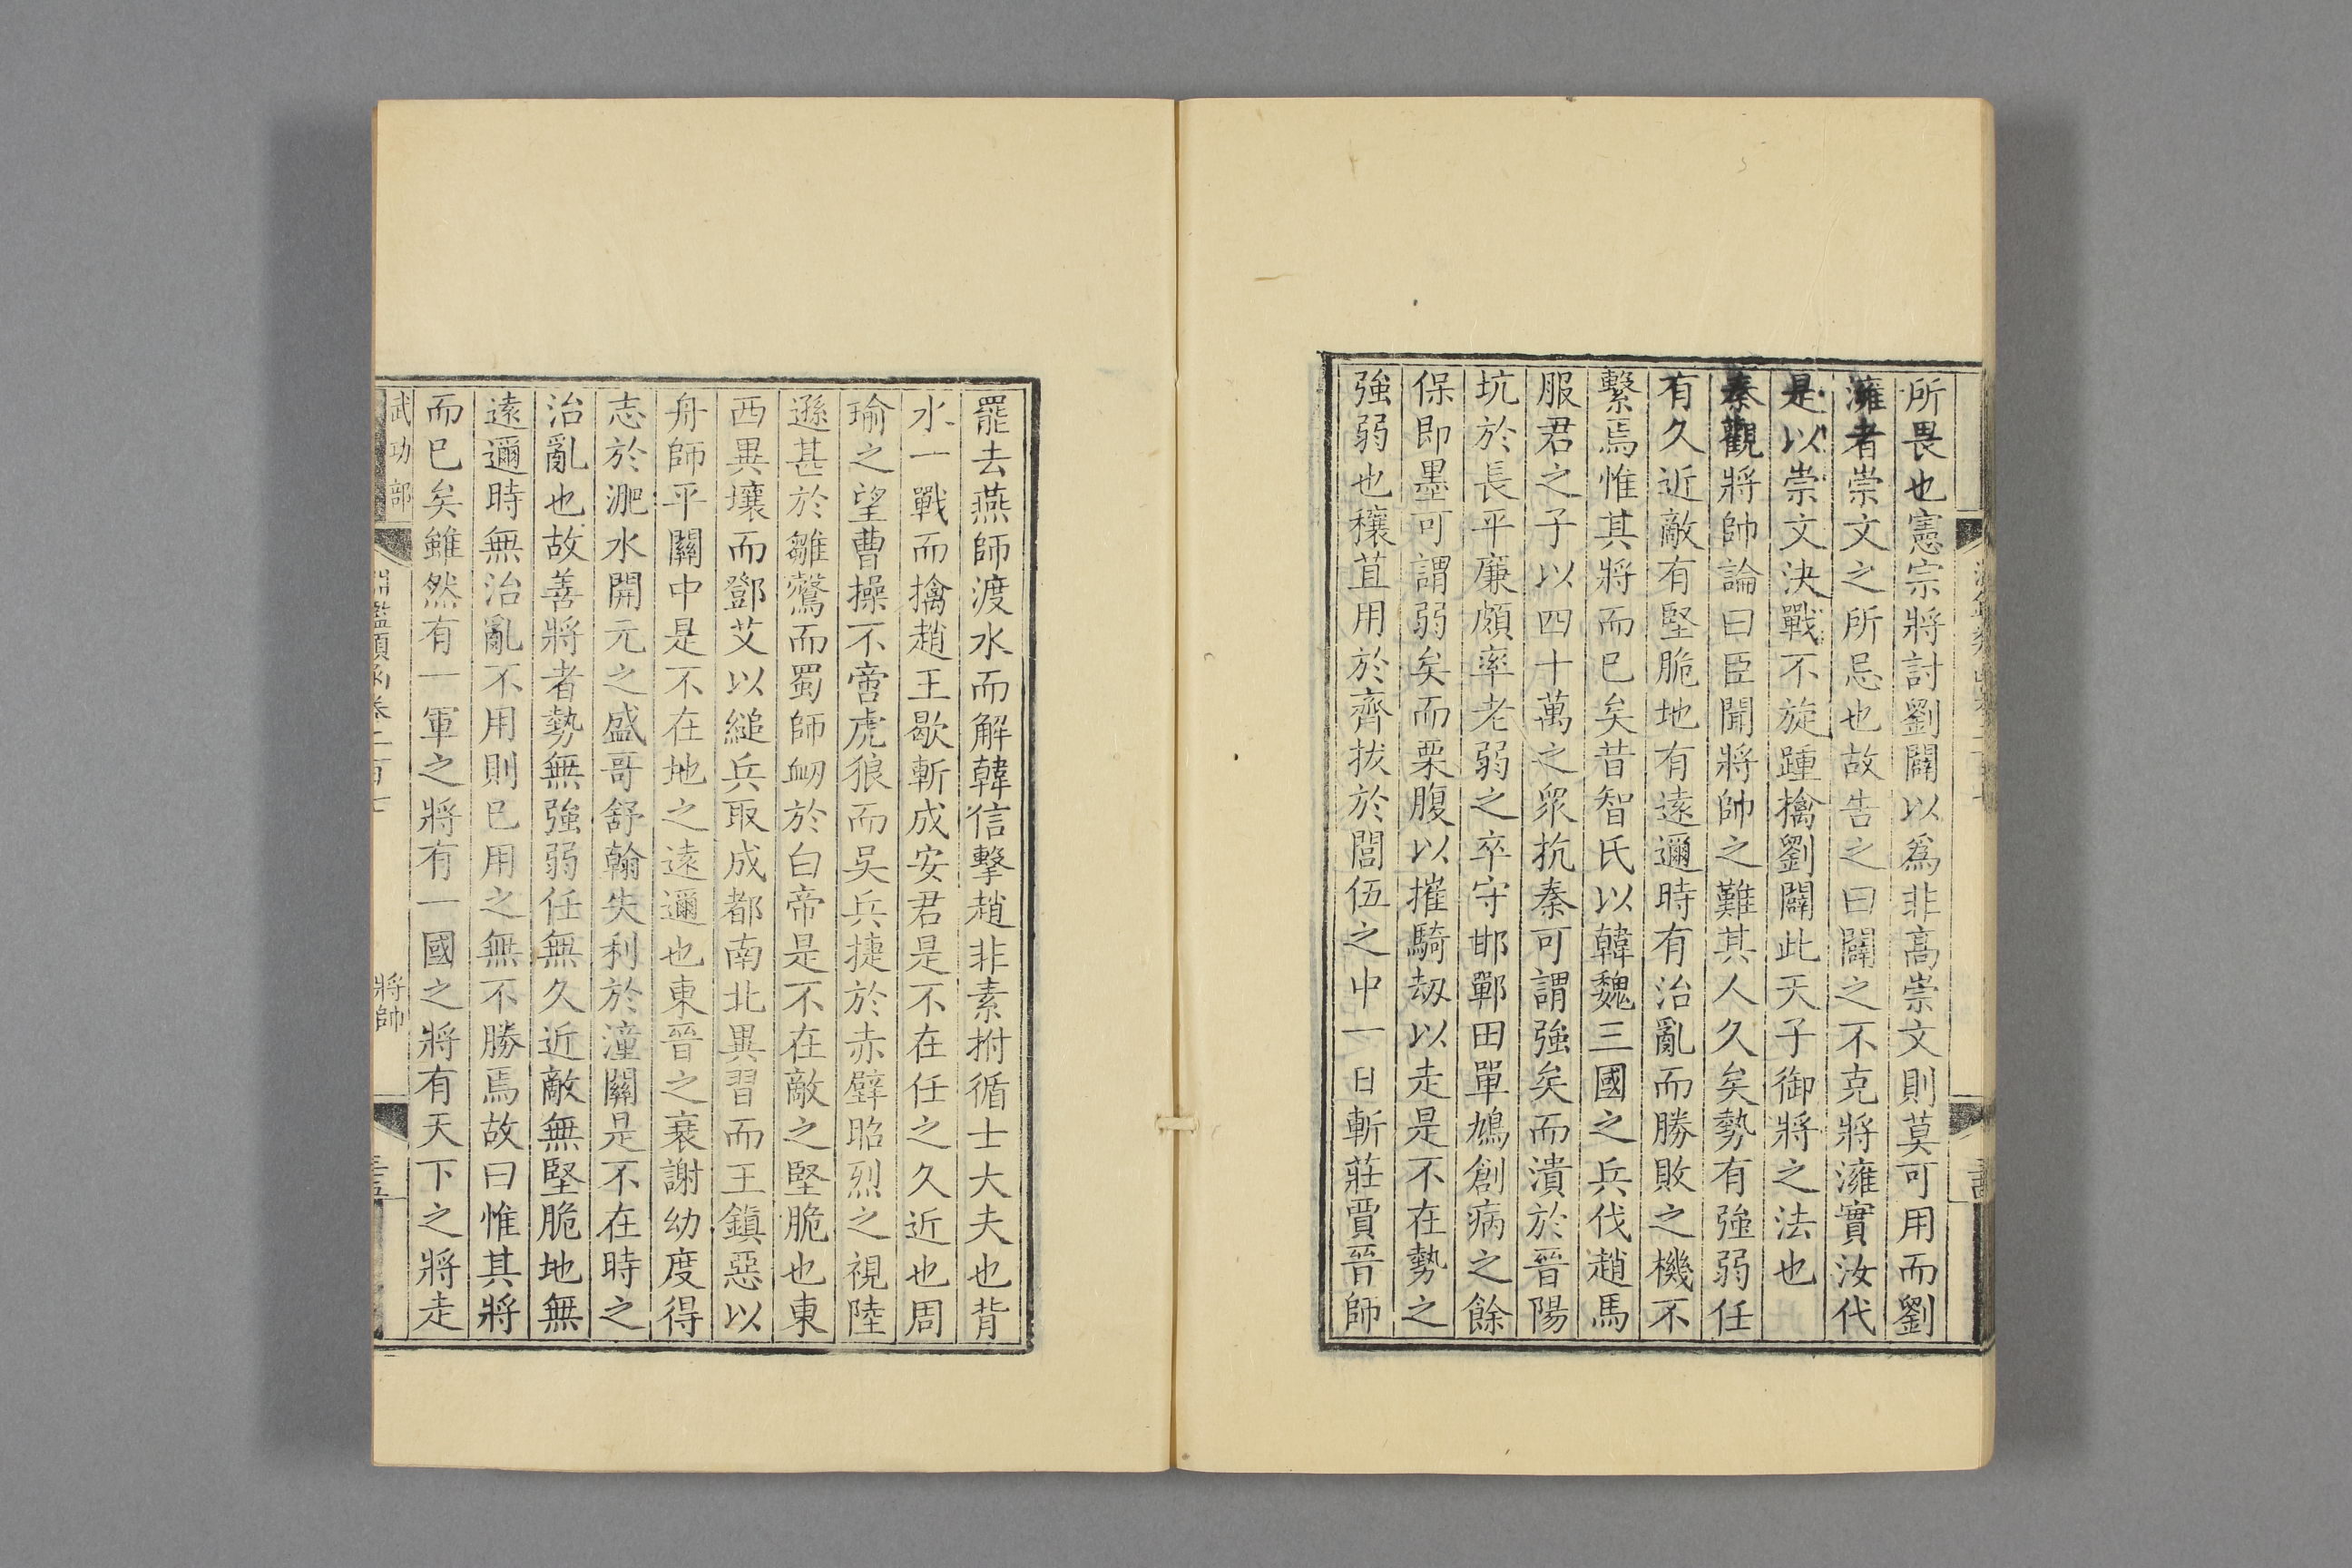 所畏也憲宗將討劉闢以為非高崇文則莫可用而劉
澭者崇文之所忌也故告之曰闢之不克將澭實汝代
是以崇文決戰不旋踵擒劉闢此天子御將之法也
秦觀將帥論曰臣聞將帥之難其人久矣勢有強弱任
有久近敵有堅脆地有遠邇時有治亂而勝敗之機不
繫焉惟其將而已矣昔智氏以韓魏三國之兵伐趙馬
服君之子以四十萬之眾抗秦可謂強矣而潰於晉陽
坑於長平廉頗率老弱之卒守邯鄲田單鳩創病之餘
保即墨可謂弱矣而栗腹以摧騎劫以走是不在勢之
強弱也穰苴用於齊拔於閭伍之中一日斬莊賈晉師
罷去燕師渡水而解韓信擊趙非素拊循士大夫也背
水一戰而擒趙王歇斬成安君是不在任之久近也周
瑜之望曹操不啻虎狼而吳兵捷於赤壁昭烈之視陸
遜甚於雛鶩而蜀師衂於白帝是不在敵之堅脆也東
西異壤而鄧艾以縋兵取成都南北異習而王鎮惡以
舟師平關中是不在地之遠邇也東晉之衰謝幼度得
志於淝水開元之盛哥舒翰失利於潼關是不在時之
治亂也故善將者勢無強弱任無久近敵無堅脆地無
遠邇時無治亂不用則已用之無不勝焉故曰惟其將
而已矣雖然有一軍之將有一國之將有天下之將走
武功部 淵鑑類函卷二百七 將帥